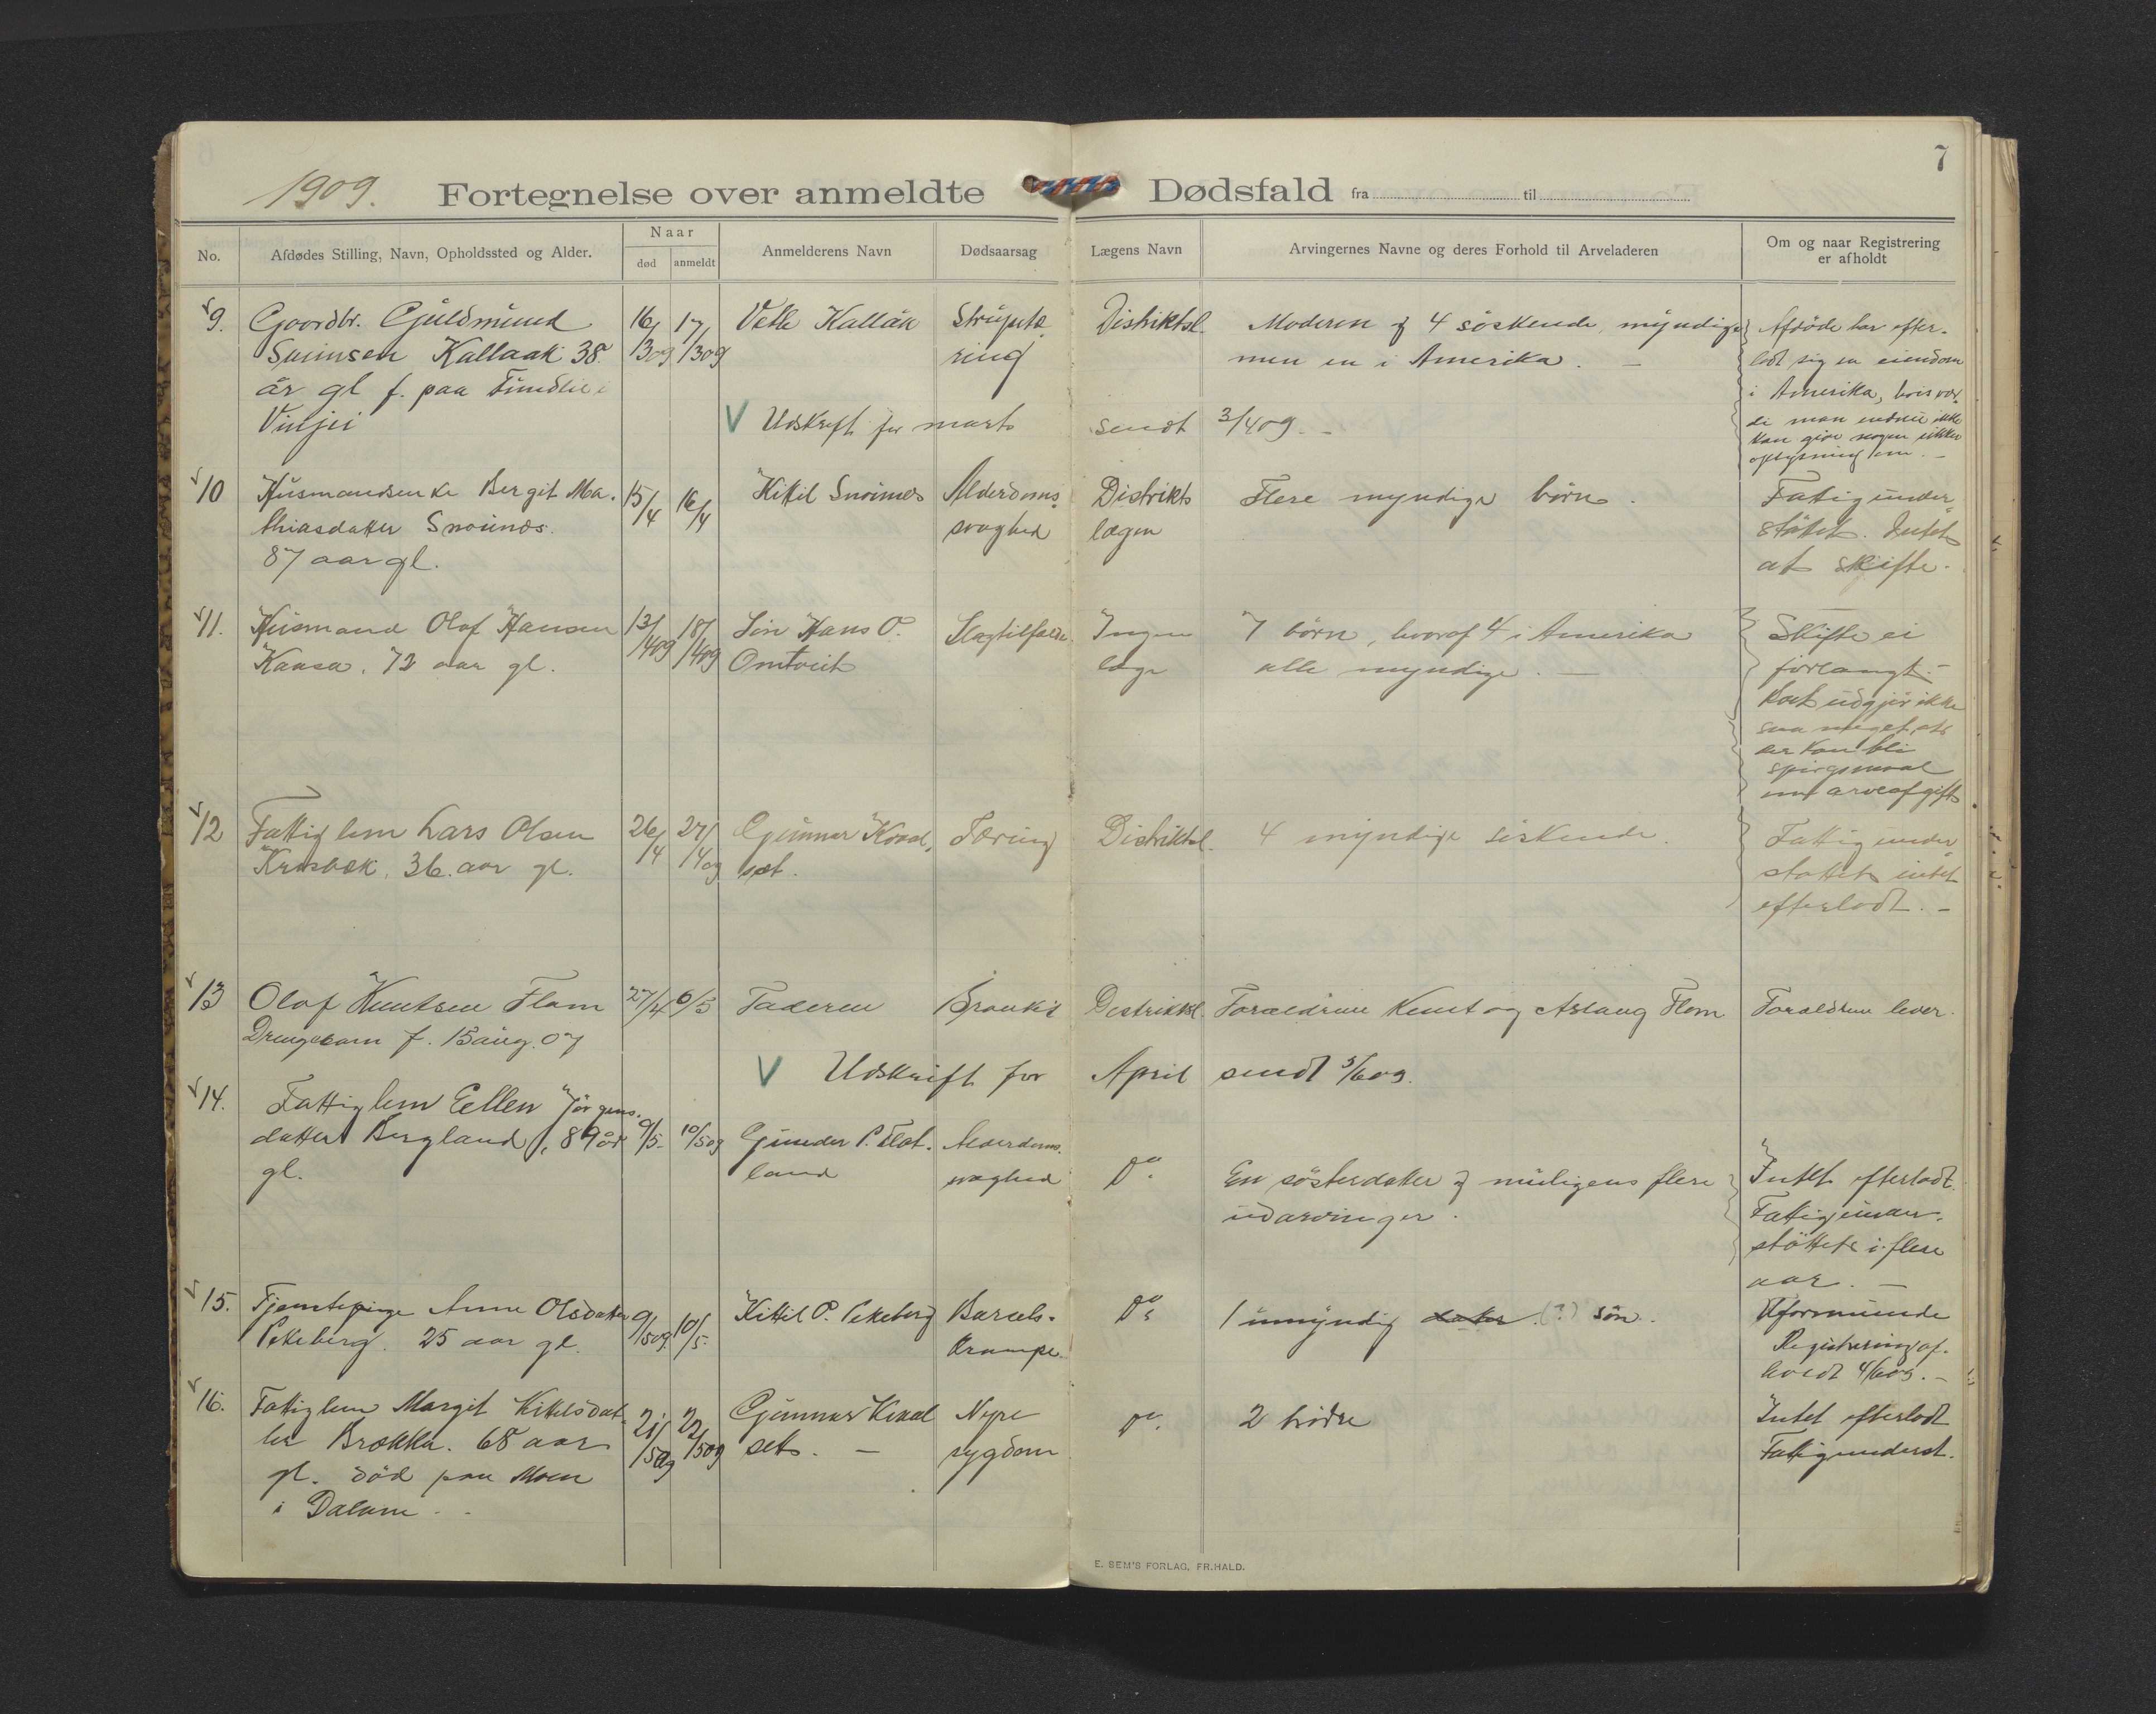 7
1909.
Fortegnelse over anmeldte Dødsfald fra til
No.
Afdødes Stilling, Navn, Opholdssted og Alder.
Naar
død
anmeldt
Anmelderens Navn
Dødsaarsag
Lægens Navn
Arvingernes Navne og deres Forhold til Arveladeren
Om og naar Registrering
er afholdt
9. Gaardbr. Guldmund 16/ 17/ Vetle Kallåk Strupetæ Distriktsl. Moderen og 4 söskende, myndige Afdöde har efter-
Kallaak 38. 3 09 3 09 ring men en i Amerika. — ladt sig en eiendom
år gl f. paa i i Amerika, hvis vær-
Vinjei di man endnu ikke
V Udskrift for marts sendt 3/4 09. — kan give nogen sikker
oplysning om. —
10 Husmandsenke Bergit Ma- 15/4 16/4 Kittil Alderdoms- Distrikts Flere myndige börn. Fatigunder-
thiasdatter svaghed lægen stöttet. Intet
87 aar gl. at skifte.
11. Husmand Olaf Hansen 13/ 18/ Sön Hans O. Slagtilfælde Ingen 7 börn, hvoraf 4 i Amerika Skifte ei
Kaasa. 72 aar gl. 4 09 4 09 Omtveit læge alle myndige. — forlangt. —
Boet udgjör ikke
saa meget, at
der kan bli
spörgsmaal
om arveafgift
12 Fattiglem Lars Olsen 26/ 27/ Gunnar Kvaal- Tæring Distriktsl. 4 myndige söskende. Fattigunder-
36. aar gl. 4 4 09 set. stöttet intet
efterladt. —
13 Olaf Knutsen Flom 27/4 6/5 Faderen Bronkit Distriktsl. Forældrene Knut og Aslaug Flom Forældrene lever.
Drengebarn f. 15 aug. 07
V Udskrift for April sendt 5/6 09.
14. Fattiglem Ellen Jörgens-
datter Bergland, 89 år 9/5 10/5 09 Gunder P. Flat- Alderdoms- Do. En sösterdatter og muligens flere Intet efterladt.
gl. land svaghed udarvinger. Fattigunder-
stöttet i flere
aar. —
15. Tjenestepige Anne Olsdatter 9/ 10/ Kittil O. Pekeberg Barsels- Do. 1 umyndig datter (?) sön. Uformuende
Pekeberg. 25 aar gl. 5 09. 5 krampe. Registrering af-
holdt 4/6 09. —
16. Fattiglem Margit Kittilsdat- 21/ 22/ Gunnar Kvaal Nyre Do. 2 brödre Intet efterladt
ter Brækka. 68 aar 5 09 5 09 set. — sygdom Fattigunderst.
gl. död paa Moen
i Dalane. -
E. SEM'S FORLAG, FR.HALD.